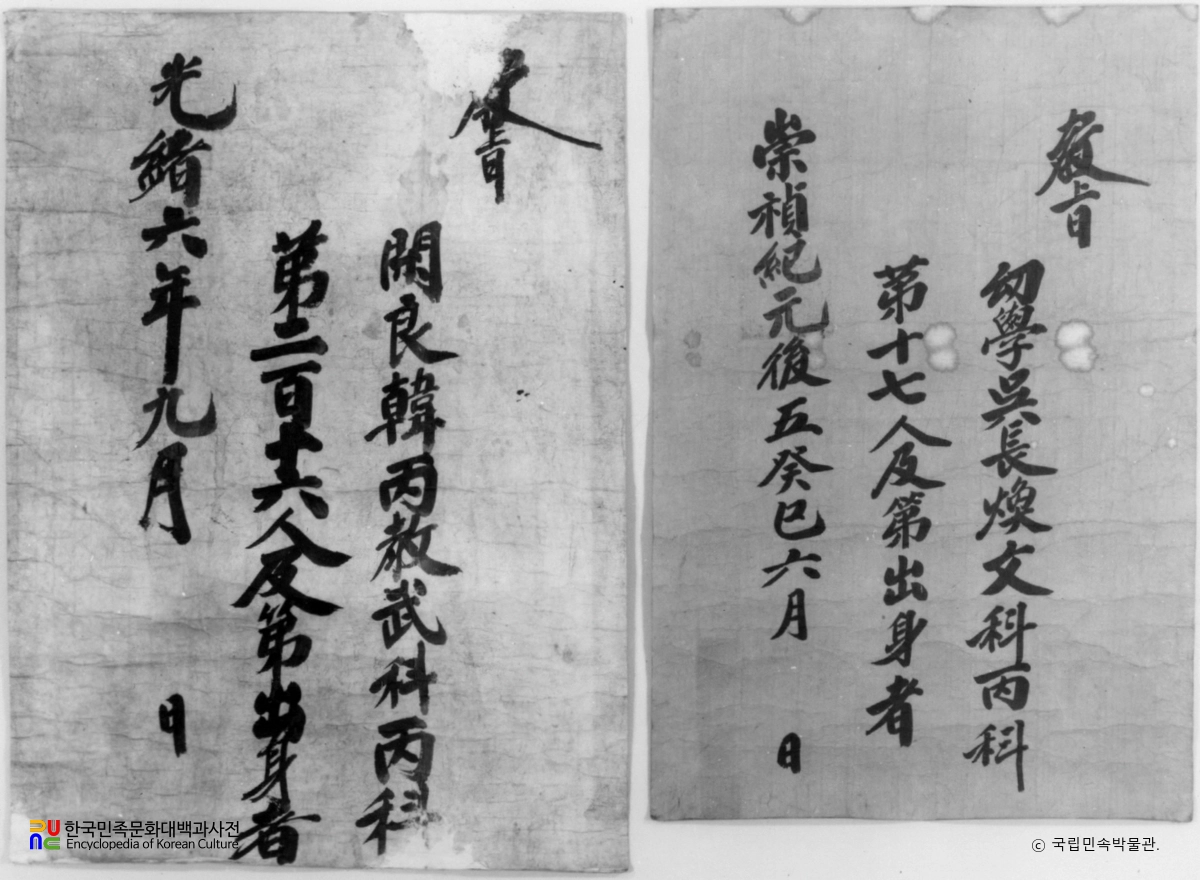 敎旨
幼學吳長煥文科丙科
第十七人及第出身者
崇禎紀元後五癸巳六月 日
敎旨
閑良韓丙敎武科丙科
第二百十六人及第出身者
光緖六年九月 日
한국민족문화대백과사전
Encyclopedia of Korean Culture
ⓒ 국립민속박물관.